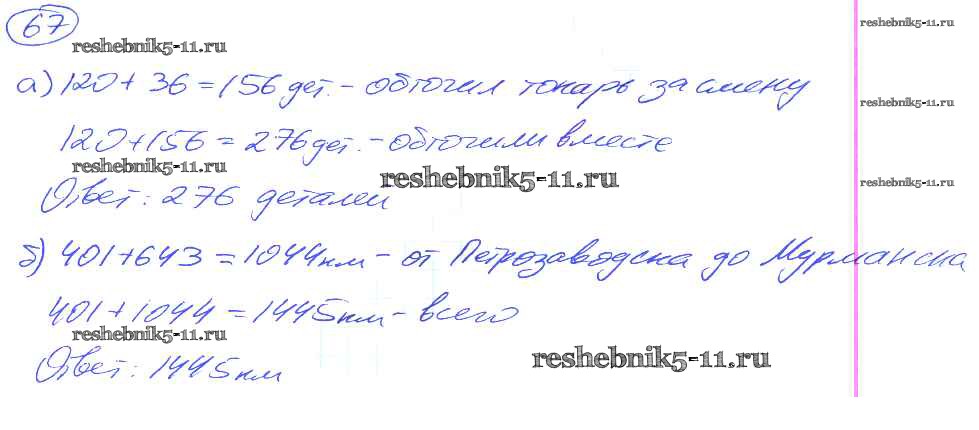 67
reshebnik5-11.ru
reshebnik5-11.ru
а) 120 + 36 = 156 дет. - обточил токарь за смену
reshebnik5-11.ru
120 + 156 = 276 дет. - обточили вместе
reshebnik5-11.ru
reshebnik5-11.ru
reshebnik5-11.ru
Ответ: 276 деталей
б) 401 + 643 = 1044 км - от Петрозаводска до Мурманска
401 + 1044 = 1445 км - всего
reshebnik5-11.ru
reshebnik5-11.ru
Ответ: 1445 км